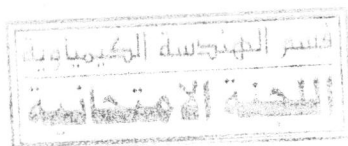 قسم الهندسة الكيمياوية
اللجنة الامتحانية